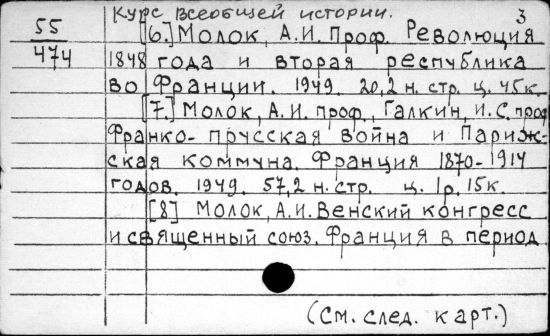 Курс всеобщей истории. 3
55
474
[6.] Молок, А.И. Проф. Революция
1848 года и вторая республика
во Франции. 1949. 20,2 н. стр. ц. 45к.
[7.] Молок, А.И. проф., Галкин, И.С. проф
Франко-прусская война и Париж-
ская коммуна. Франция 1870-1914
годов. 1949. 57,2 н. стр. ц. 1р. 15к.
[8] Молок, А.И. Венский конгресс
и священный союз. Франция в период
(См. след. карт.)